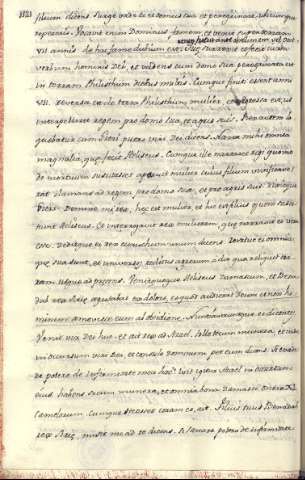 filium dicens Surge vade tu et domus tua et peregrinare ubicunque
repereris. Vocavit enim Dominus famem, et veniet super terram
VII annis
verbum hominis Dei, et vadens cum domo sua peregrinata est
in terram Philisthim diebus multis. Cumque finiti essent anni
VII. reversa est de terra Philisthim mulier, et egressa est, ut
interpellaret regem pro domo sua, et agris suis. Rex autem lo-
quebatur cum Giezi puero viri Dei dicens. Narra mihi omnia
magnalia, quæ fecit Heliseus. Cumque ille narraret regi quomo-
do mortuum suscitasset apparuit mulier cuius filium vivificave-
rat clamans ad regem pro domo sua, et pro agris suis. Dixitque
Giezi. Domine mi rex, hæc est mulier, et hic est filius quem susci-
Et interrogavit rex mulierem, quæ narravit
esse. Deditque ei rex eunuchum unum dicens. Restitue ei omnia
quæ sua sunt, et universos reditus agrorum a die qua reliquit ter-
ram usque ad præsens. Venit quoque Heliseus Damascum, et Bena-
dab rex
Venit vir Dei huc. et ait rex ad Azael. Tolle tecum munera, et vade
in occursum viri Dei, et consule Dominum per eum dicens. Si evade-
re potero de infirmitate mea hac? Ivit igitur Azael in occursum
eius habens secum munera, et omnia bona Damasci onera XL
Camelorum. Cumque stetisset coram eo, ait. Filius tuus Benadab
rex misit me ad te dicens. Si sanari potero de infirmitate